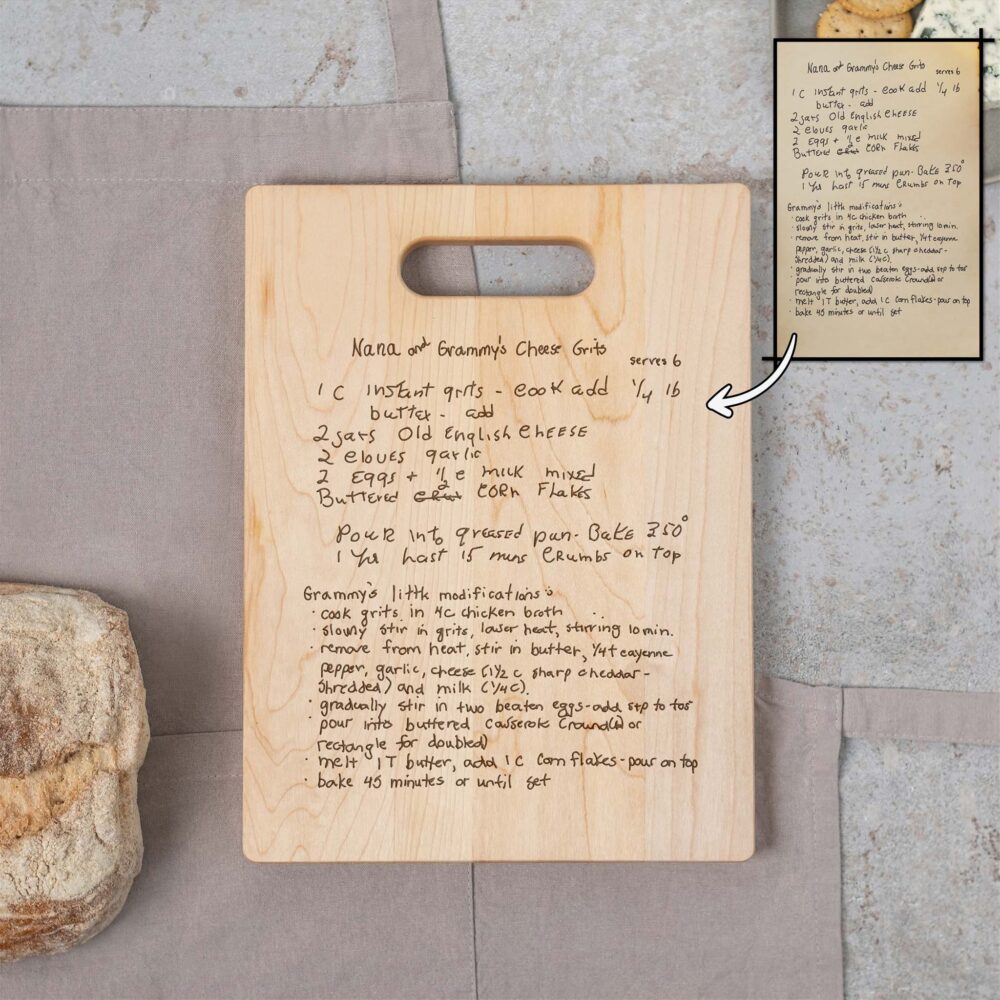 Nana and Grammy's Cheese Grits
serves 6
1 C instant grits - cook add 1/4 lb
butter - add
2 jars Old English CHEESE
2 cloves garlic
2 Eggs + 1/2 c milk mixed
Buttered CORN Flakes
Pour into greased pan - Bake 350°
1 hr last 15 mins Crumbs on Top
Grammy's little modifications:
· cook grits in 4c chicken broth
· slowly stir in grits, lower heat, stirring 10 min.
· remove from heat, stir in butter, 1/4 t cayenne
pepper, garlic, cheese (1 1/2 c sharp cheddar-
shredded) and milk (1/4 c).
· gradually stir in two beaten eggs - add
pour into buttered casserole (round or
rectangle for doubled)
· melt 1T butter, add 1 C corn flakes - pour on top
· bake 45 minutes or until set
Nana and Grammy's Cheese Grits
serves 6
1 C instant grits - cook add 1/4 lb
butter - add
2 jars Old English CHEESE
2 cloves garlic
2 Eggs + 1/2 c milk mixed
Buttered CORN Flakes
Pour into greased pan - Bake 350°
1 hr last 15 mins Crumbs on Top
Grammy's little modifications:
· cook grits in 4c chicken broth
· slowly stir in grits, lower heat, stirring 10 min.
· remove from heat, stir in butter, 1/4 t cayenne
pepper, garlic, cheese (1 1/2 c sharp cheddar-
shredded) and milk (1/4 c).
· gradually stir in two beaten eggs - add
pour into buttered casserole (round or
rectangle for doubled)
· melt 1T butter, add 1 C corn flakes - pour on top
· bake 45 minutes or until set